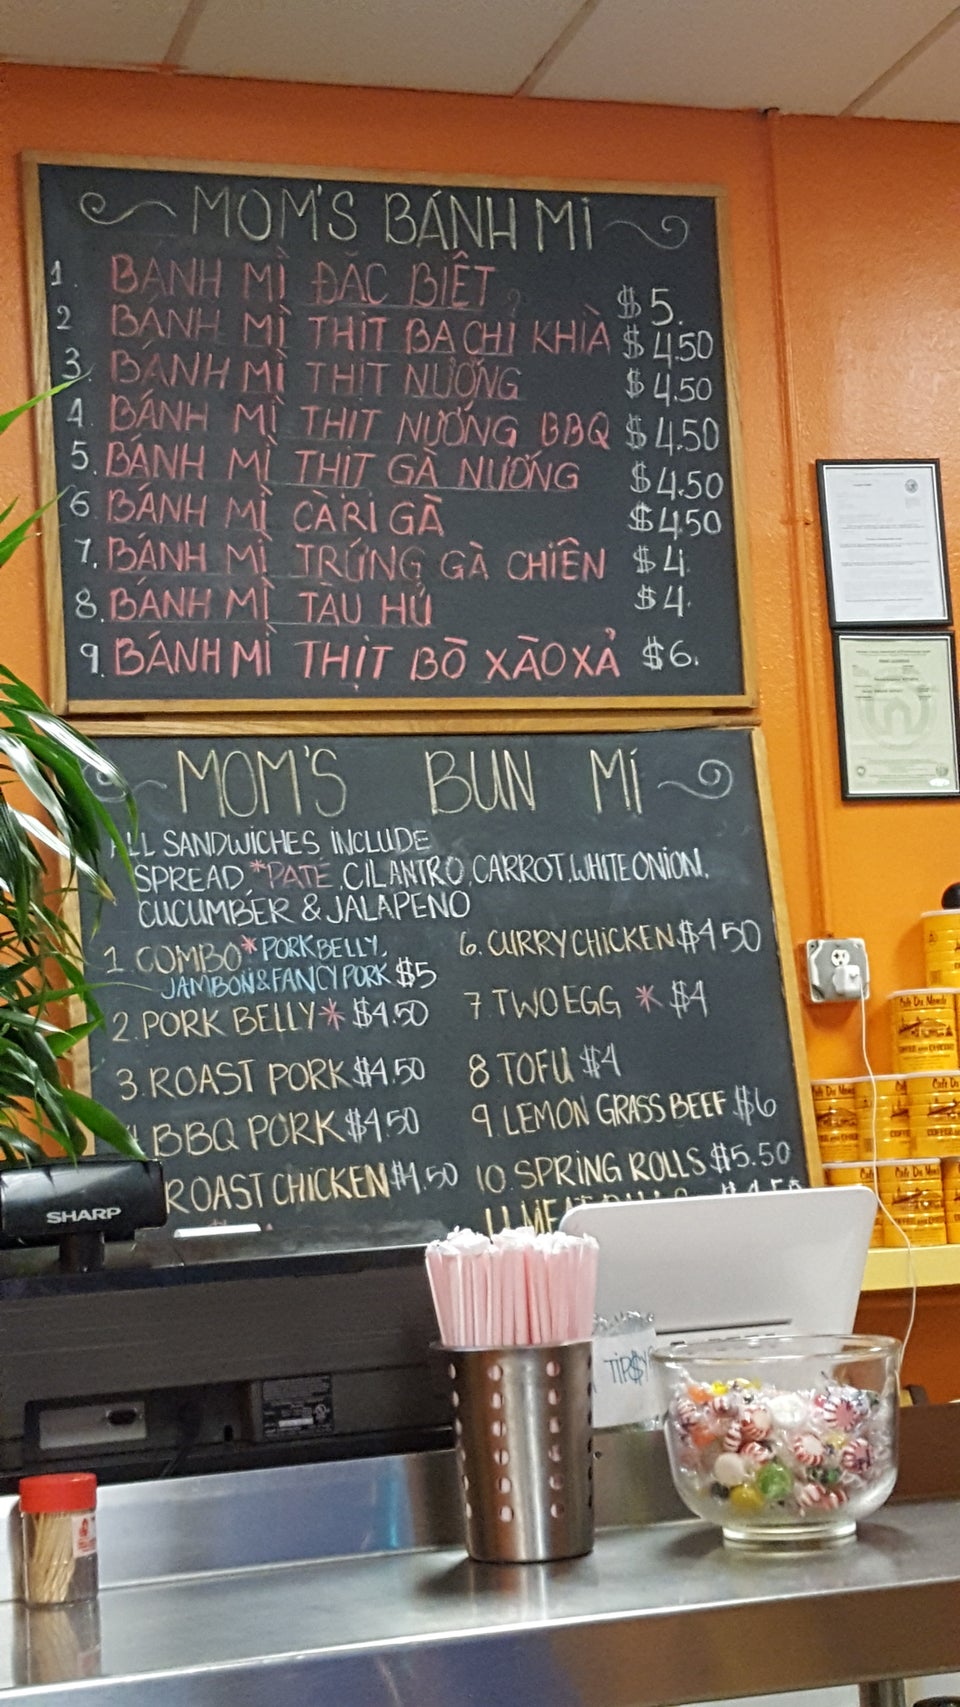 MOM'S BÁNH MÌ
1. BÁNH MÌ ĐẶC BIỆT $5.
2 BÁNH MÌ THỊT BA CHỈ KHÌA $4.50
3. BÁNH MÌ THỊT NƯỚNG $4.50
4 BÁNH MÌ THỊT NƯỚNG BBQ $4.50
5. BÁNH MÌ THỊT GÀ NƯỚNG $4.50
6 BÁNH MÌ CÀ RI GÀ $4.50
7. BÁNH MÌ TRỨNG GÀ CHIÊN $4.
8. BÁNH MÌ TÀU HỦ $4.
9. BÁNH MÌ THỊT BÒ XÀO XẢ $6.
MOM'S BUN MI
ALL SANDWICHES INCLUDE
SPREAD, *PATÉ, CILANTRO, CARROT, WHITE ONION,
CUCUMBER & JALAPENO
1 COMBO* PORK BELLY,
JAMBON & FANCY PORK $5
2. PORK BELLY* $4.50
3. ROAST PORK $4.50
BBQ PORK $4.50
ROAST CHICKEN $4.50
6. CURRY CHICKEN $4.50
7 TWO EGG * $4
8 TOFU $4
9. LEMON GRASS BEEF $6
10 SPRING ROLLS $5.50
11
SHARP
TIP$Y
Café Du Monde